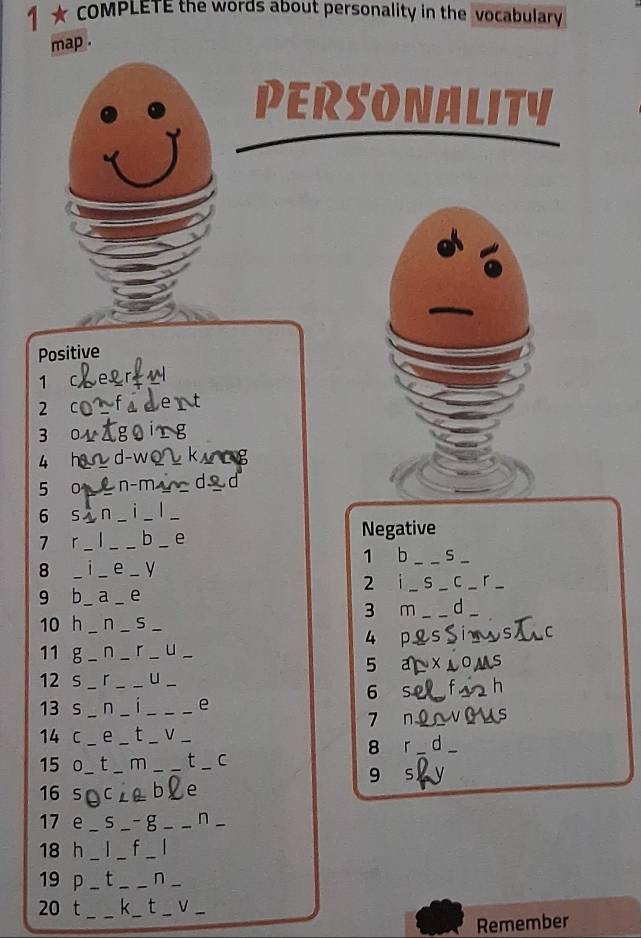 1 ★ COMPLETE the words about personality in the vocabulary
map.
PERSONALITY
Positive
1 cheerful
2 confident
3 outgoing
4 hard-working
5 open-minded
6 sin_i_l_
7 r_l__b_e
8 _i_e_y
9 b_a_e
10 h_n_s_
11 g_n_r_u_
12 s_r__u_
13 s_n_i___e
14 c_e_t_v_
15 o_t_m__t_c
16 sociable
17 e_s_-g__n_
18 h_l_f_l
19 p_t__n_
20 t__k_t_v_
Negative
1 b__s_
2 i_s_c_r_
3 m__d_
4 pessimistic
5 anxious
6 selfish
7 nervous
8 r_d_
9 shy
Remember